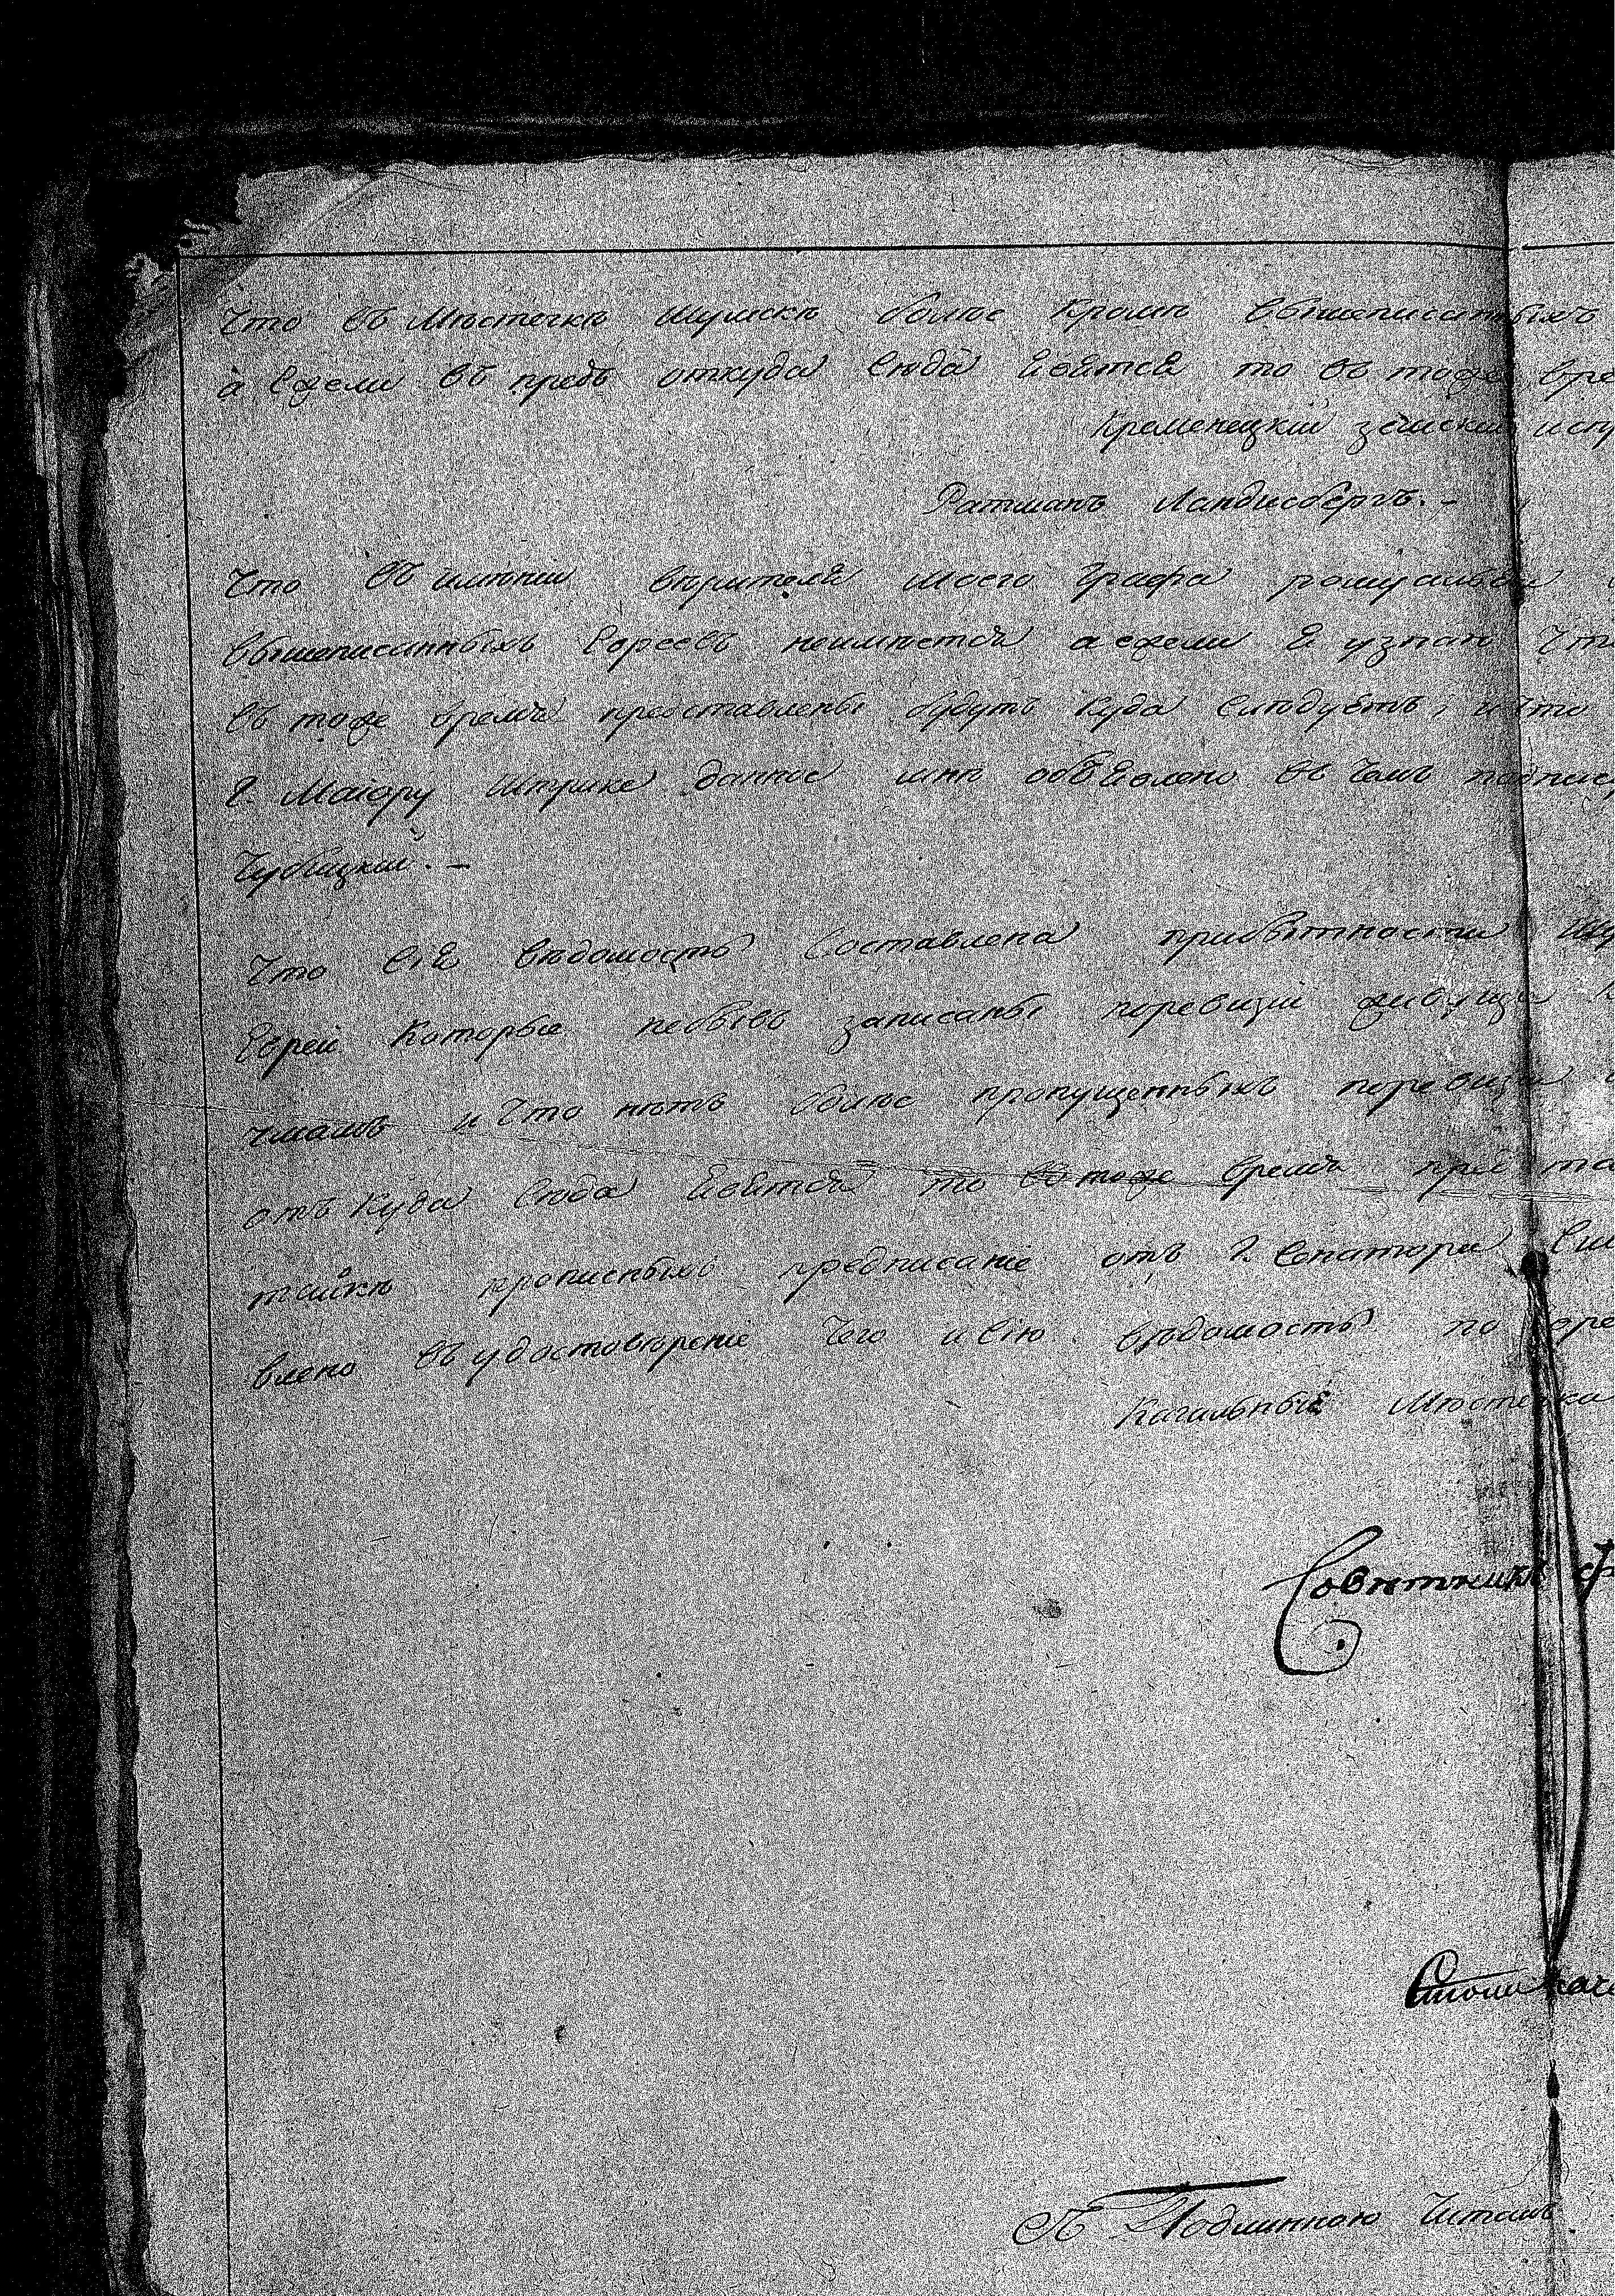 Что въ Мѣстечкѣ Шумскѣ болѣе Кромѣ вышеписанныхъ
а Ежели въ предь откуда Сюда Явятся то въ тоже вре
Кременецкий земский испр
Ратманъ Ландисбергъ. –
Что въ имѣнии вѣрителя Моего Графа
вышеписанныхъ Евреевъ неимѣется а ежели Я узнаю Что
въ тоже время представлены будутъ Куда Слѣдуетъ, и что
Г. Маіору данное мнѣ объявлено въ Чемъ подпис
Что Сія вѣдомость Составлена прибытности Шу
Евреи Которые небывъ записаны поревизіи живущи
и Что нѣтъ болѣе пропущенныхъ поревизіи
отъ Куда Сюда Явятся то въ тоже время пред та
прописныхъ предписание отъ Г. Сенатора Сив
влено въ удостоверение Чего и Сію вѣдомость по
Кагальный Мѣстечка
Совѣтникъ Ф
Столоначе
Съ Подлинною Читалъ